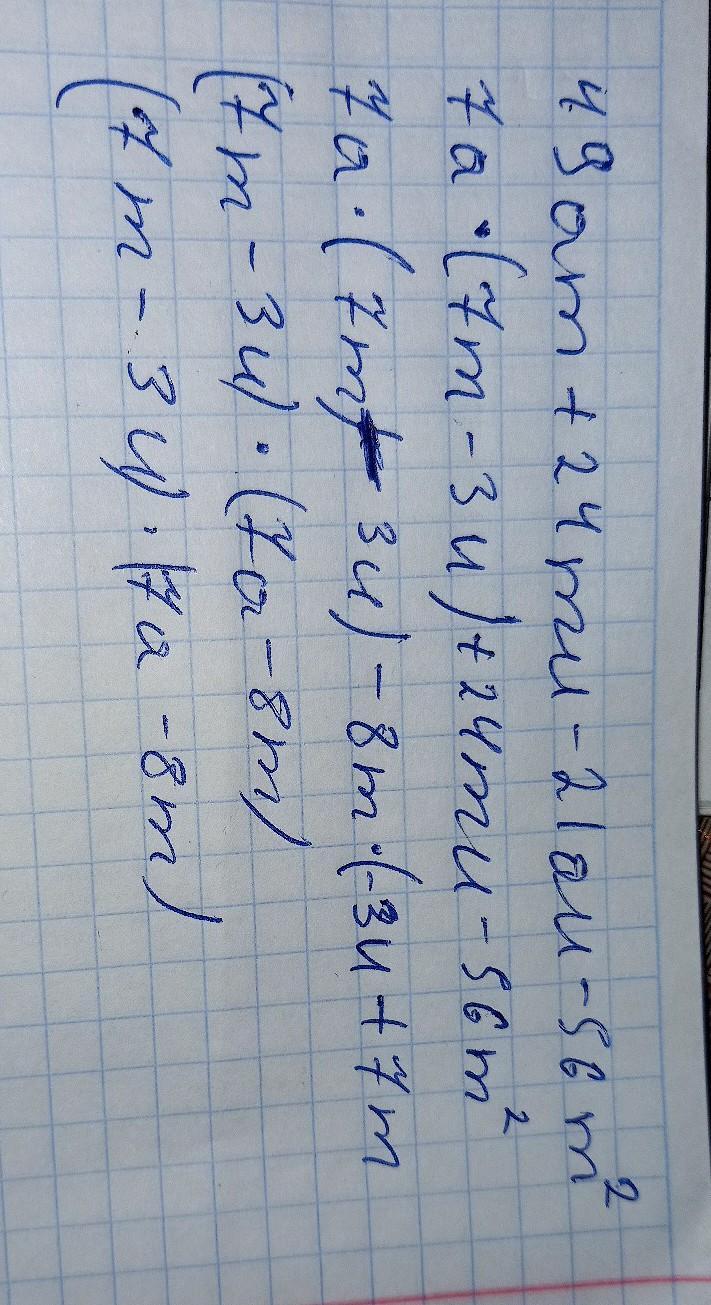 49am+24mu-21au-56m²
7a·(7m-3u)+24mu-56m²
7a·(7m-3u)-8m·(-3u+7m
(7m-3u)·(7a-8m)
(7m-3u)·(7a-8m)